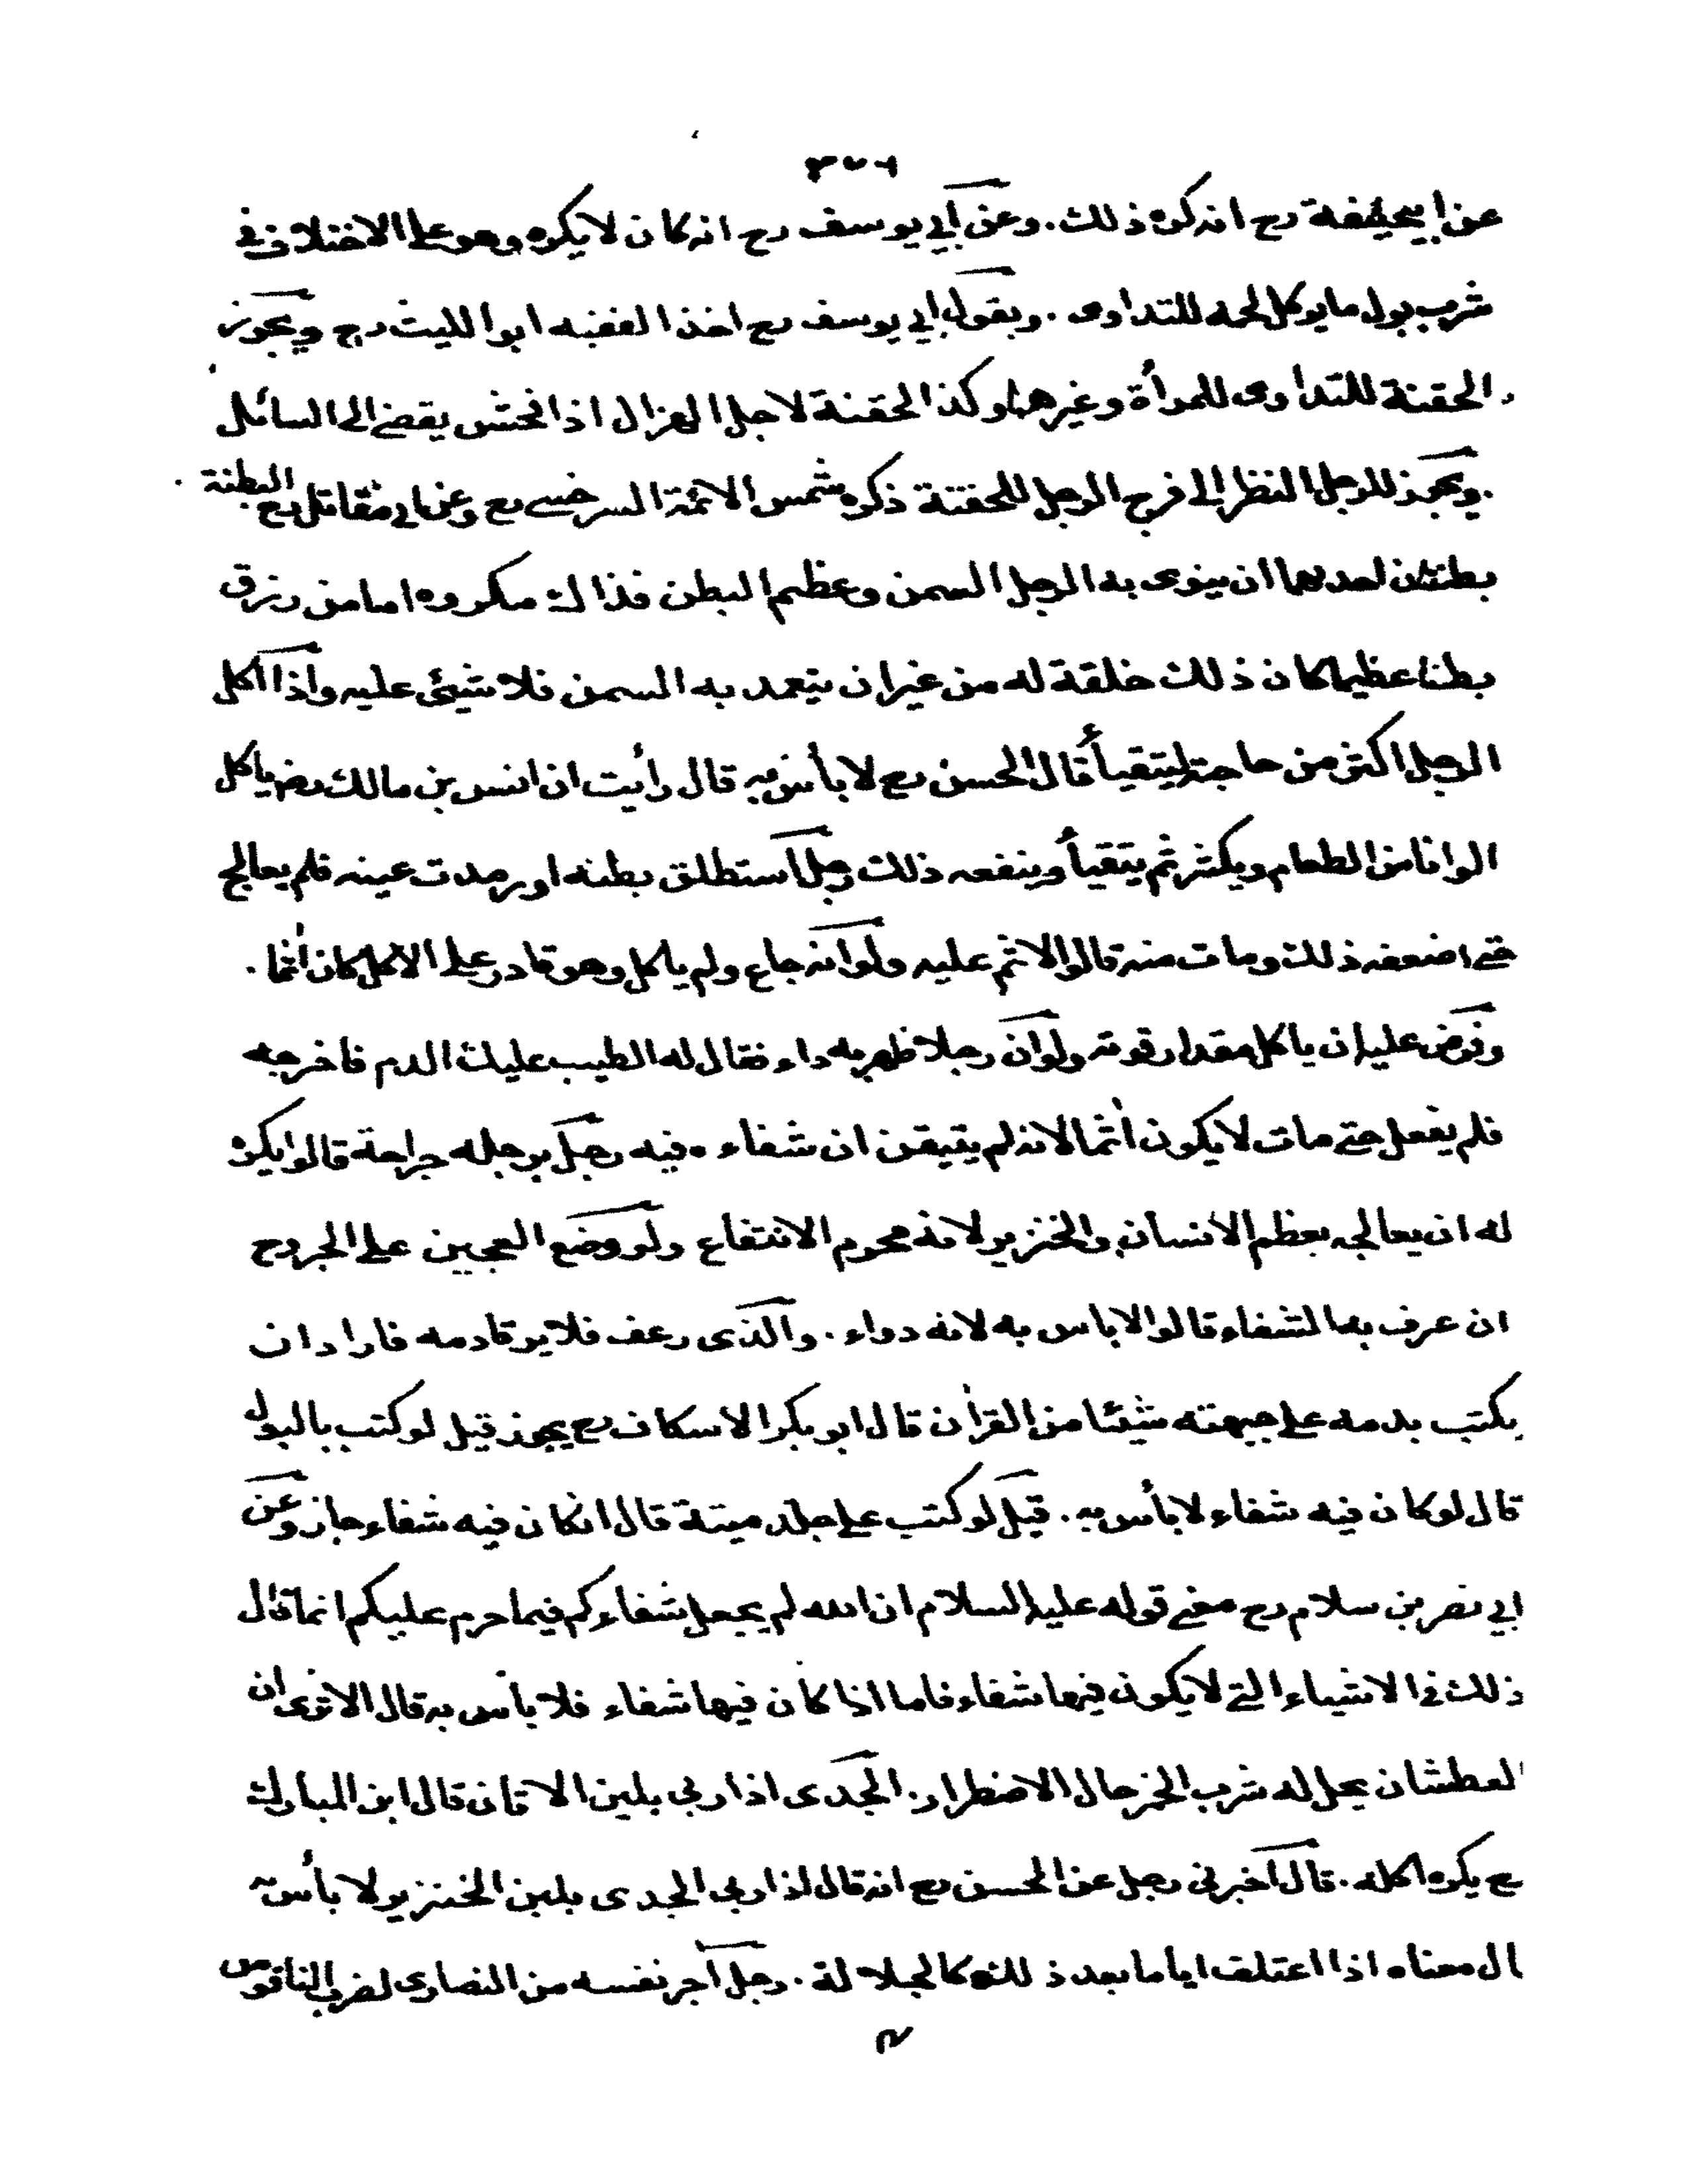 عن ابيحنيفة رح انه كره ذلك. وعن ابي يوسف رح انه كان لا يكره وهو على الاختلاف في
شرب بول ما يوكل لحمه للتداوى . وبقول ابي يوسف رح اخذ الفقيه ابو الليث رح ويجوز
الحقنة للتداوى للمرأة وغيرها وكذا الحقنة لاجل الهزال اذا فحش يفضى الى السائل
ويجوز للرجل النظر الى فرج الرجل للحقنة ذكره شمس الائمة السرخسى رح وعن ابى مقاتل رح البطنة
بطنتان احدهما ان ينوى به الرجل السمن وعظم البطن فذاك مكروه اما من رزق
بطنا عظيما كان ذلك خلقة له من غير ان يتعمد به السمن فلا شيئ عليه واذا اكل
الرجل اكثر من حاجته ليتقيأ قال الحسن رح لا بأس به قال رأيت ان انس بن مالك رض ياكل
الوانا من الطعام ويكثر ثم يتقيأ وينفعه ذلك رجل استطلق بطنه او رمدت عينه فلم يعالج
حتى اضعفه ذلك ومات منه قالوا لا اثم عليه ولو انه جاع ولم ياكل وهو قادر على الاكل كان اثما .
وفرض عليه ان ياكل مقدار قوته ولو ان رجلا ظهر به داء فقال له الطبيب عليك الدم فاخرجه
فلم يفعل حتى مات لا يكون اثما لانه لم يتيقن ان شفاءه فيه رجل برجله جراحة قالوا يكره
له ان يعالجه بعظم الانسان والخنزير لانه محرم الانتفاع ولو وضع العجين على الجروح
ان عرف به الشفاء قالوا لا باس به لانه دواء . والذى رعف فلا يرقا دمه فاراد ان
يكتب بدمه على جبهته شيئا من القرآن قال ابو بكر الاسكاف رح يجوز قيل لو كتب بالبول
قال لو كان فيه شفاء لا بأس به . قيل لو كتب على جلد ميتة قال ان كان فيه شفاء جاز وعن
ابي نصر بن سلام رح معنى قوله عليه السلام ان الله لم يجعل شفاءكم فيما حرم عليكم انما قال
ذلك فى الاشياء التى لا يكون فيها شفاء فاما اذا كان فيها شفاء فلا بأس به قال الا ترى ان
العطشان يحل له شرب الخمر حال الاضطرار . الجدى اذا ربي بلبن الاتان قال ابن المبارك
رح يكره اكله . قال اخبرنى رجل عن الحسن رح انه قال اذا ربى الجدى بلبن الخنزير لا بأس به
قال معناه اذا اعتلف اياما بعد ذلك كالجلالة . رجل آجر نفسه من النصارى لضرب الناقوس